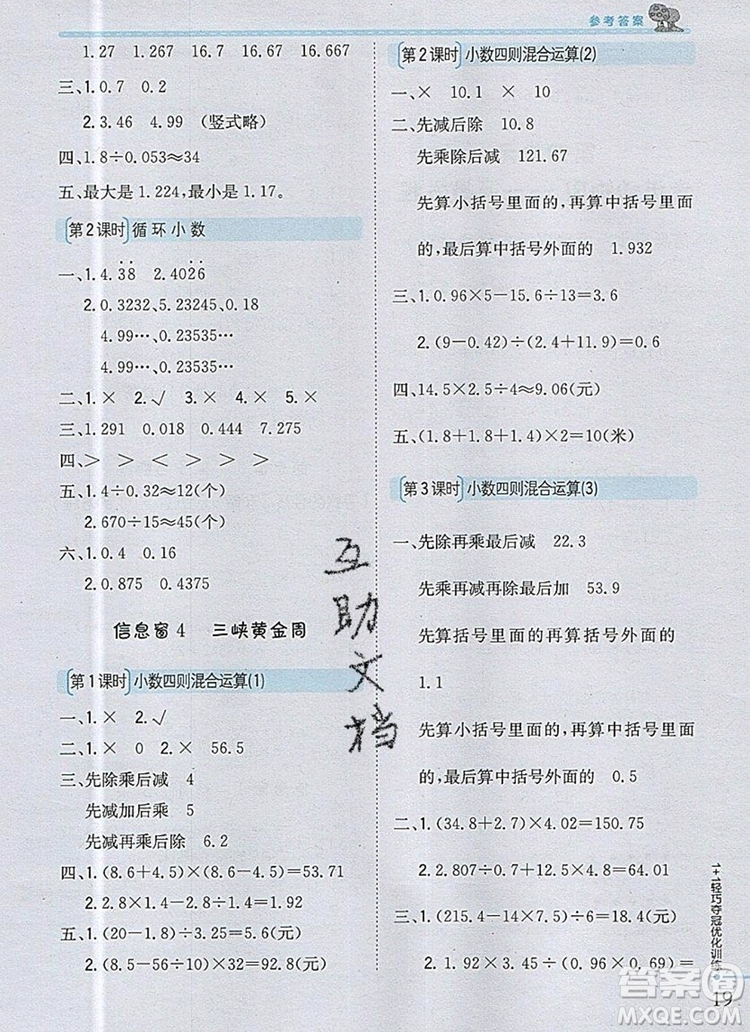 参考答案
1.27 1.267 16.7 16.67 16.667
三、1.0.7 0.2
2.3.46 4.99 (竖式略)
四、1.8÷0.053≈34
五、最大是1.224,最小是1.17。
第2课时 循环小数
一、1.4.3̇8̇ 2.4.02̇6̇
2.0.3232、5.23245、0.18
4.99…、0.23535…
4.99…、0.23535…
二、1.× 2.√ 3.× 4.× 5.×
三、1.291 0.018 0.444 1.375
四、> > < > < >
五、1.4÷0.32≈12(个)
2.670÷15≈45(个)
六、1.0.4 0.16
2.0.875 0.4375
信息窗4 三峡黄金周
第1课时 小数四则混合运算(1)
一、1.× 2.√
二、1.× 0 2.× 56.5
三、先除乘后减 4
先减加后乘 5
先减再乘后除 6.2
四、1.(8.6+4.5)×(8.6-4.5)=53.71
五、1.(20-1.8)÷3.25=5.6(元)
2.(8.5-56÷10)×32=92.8(元)
第2课时 小数四则混合运算(2)
一、× 10.1 × × 10
二、先减后除 10.8
先乘除后减 121.67
先算小括号里面的,再算中括号里面的,最后算中括号外面的 1.932
三、1.0.96×5-15÷12.5=3.6
2.(9-0.42)÷(2.4+11.9)=0.6
四、14.5×2.5÷4≈9.06(元)
五、(1.8+1.8+1.4)×2=10(米)
第3课时 小数四则混合运算(3)
一、先除再乘最后减 22.3
先乘再减再除最后加 53.9
先算小括号里面的再算中括号里面的
1.1
先算小括号里面的,再算中括号里面的,最后算中括号外面的 0.5
二、1.(34.8-7+2)×4.5=150.75
2.2.807÷[(1.9+0.2)×2]=0.67
三、1.(215.4-14×7.6)÷6=18.4(元)
2.1.92×[30÷(0.96×0.69)]=64.0
1+1轻巧夺冠优化训练
19
互助文档
答案圈
MXQE.COM